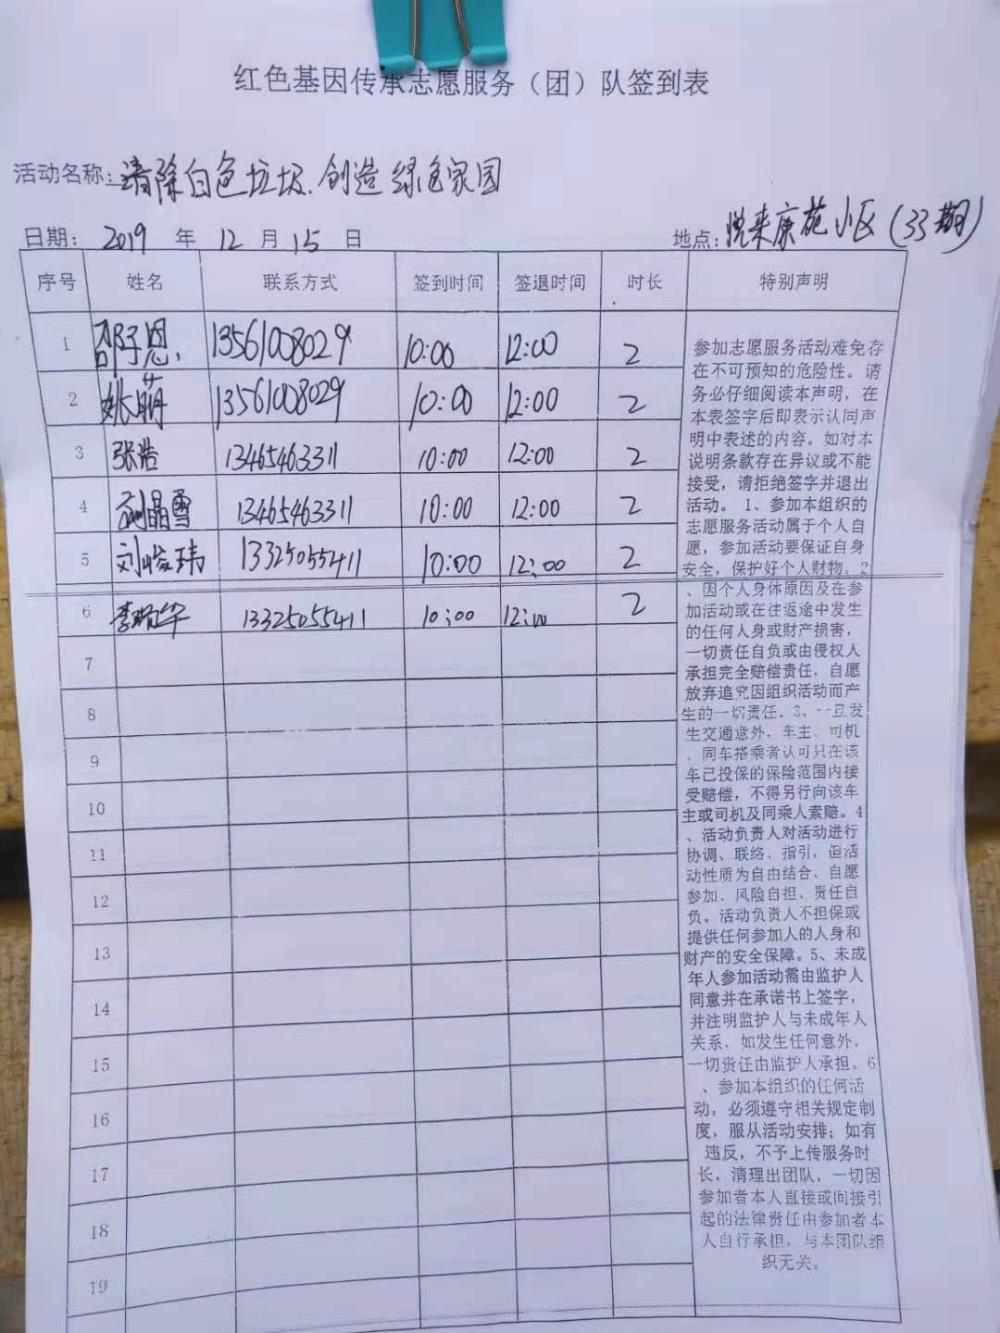 红色基因传承志愿服务（团）队签到表
活动名称：清除白色垃圾.创造绿色家园
日期： 2019 年 12 月 15 日 地点：悦来康苑小区(33期)
序号 姓名 联系方式 签到时间 签退时间 时长 特别声明
1 邵子恩 13561008029 10:00 12:00 2
2 姚萌 13561008029 10:00 12:00 2
3 张浩 13465463311 10:00 12:00 2
4 晶雪 13465463311 10:00 12:00 2
5 刘峻玮 13325055411 10:00 12:00 2
6 李 华 13325055411 10:00 12:00 2
7
8
9
10
11
12
13
14
15
16
17
18
19
参加志愿服务活动难免存
在不可预知的危险性。请
务必仔细阅读本声明，在
本表签字后即表示认同声
明中表述的内容。如对本
说明条款存在异议或不能
接受，请拒绝签字并退出
活动。 1、参加本组织的
志愿服务活动属于个人自
愿，参加活动要保证自身
安全，保护好个人财物。2
、因个人身体原因及在参
加活动或在往返途中发生
的任何人身或财产损害，
一切责任自负或由侵权人
承担完全赔偿责任，自愿
放弃追究因组织活动而产
生的一切责任。3、一旦发
生交通意外，车主、司机
、同车搭乘者认可只在该
车已投保的保险范围内接
受赔偿，不得另行向该车
主或司机及同乘人索赔。4
、活动负责人对活动进行
协调、联络、指引，但活
动性质为自由结合、自愿
参加、风险自担、责任自
负。活动负责人不担保或
提供任何参加人的人身和
财产的安全保障。5、未成
年人参加活动需由监护人
同意并在承诺书上签字，
并注明监护人与未成年人
关系，如发生任何意外，
一切责任由监护人承担。6
、参加本组织的任何活
动，必须遵守相关规定制
度，服从活动安排；如有
违反，不予上传服务时
长，清理出团队，一切因
参加者本人直接或间接引
起的法律责任由参加者本
人自行承担，与本团队组
织无关。